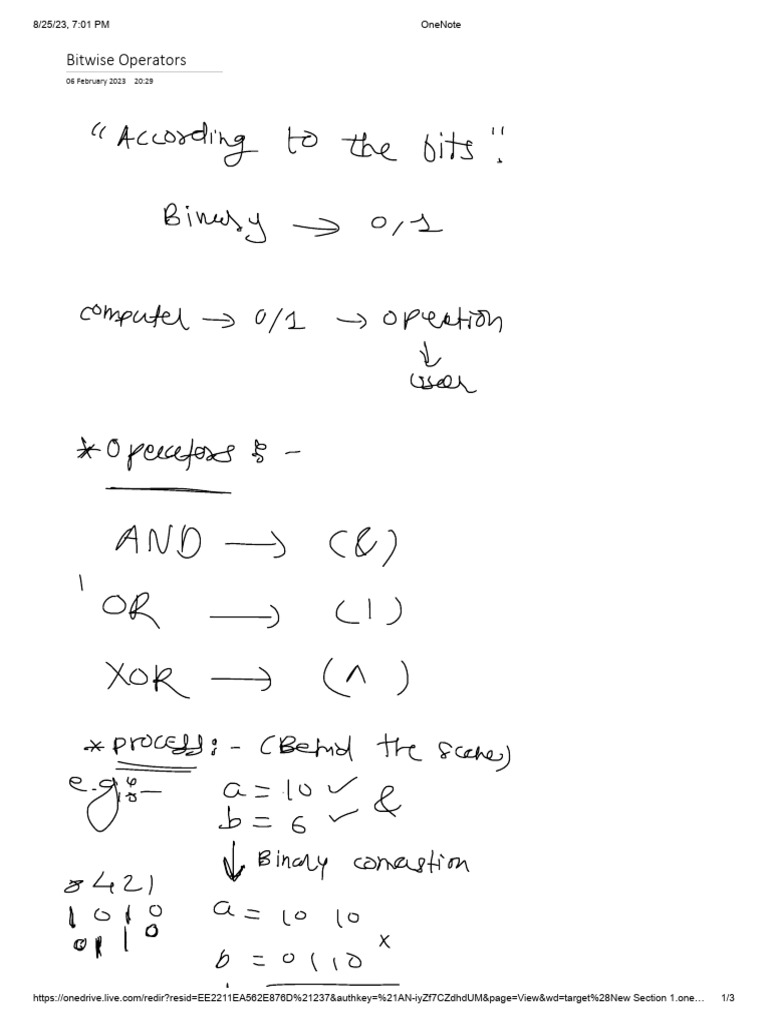 8/25/23, 7:01 PM OneNote
Bitwise Operators
06 February 2023 20:29
"According to the bits".
Binary → 0/1
computer → 0/1 → operation
↓
user
* Operators :-
AND → (&)
OR → (|)
XOR → (^)
* process :- (Behind the scene)
e.g :- a = 10 ✓ &
b = 6 ✓
↓ Binary conversion
8421
1010 a = 1010
0110 b = 0110 x
https://onedrive.live.com/redir?resid=EE2211EA562E876D%21237&authkey=%21AN-iyZf7CZdhdUM&page=View&wd=target%28New Section 1.one… 1/3